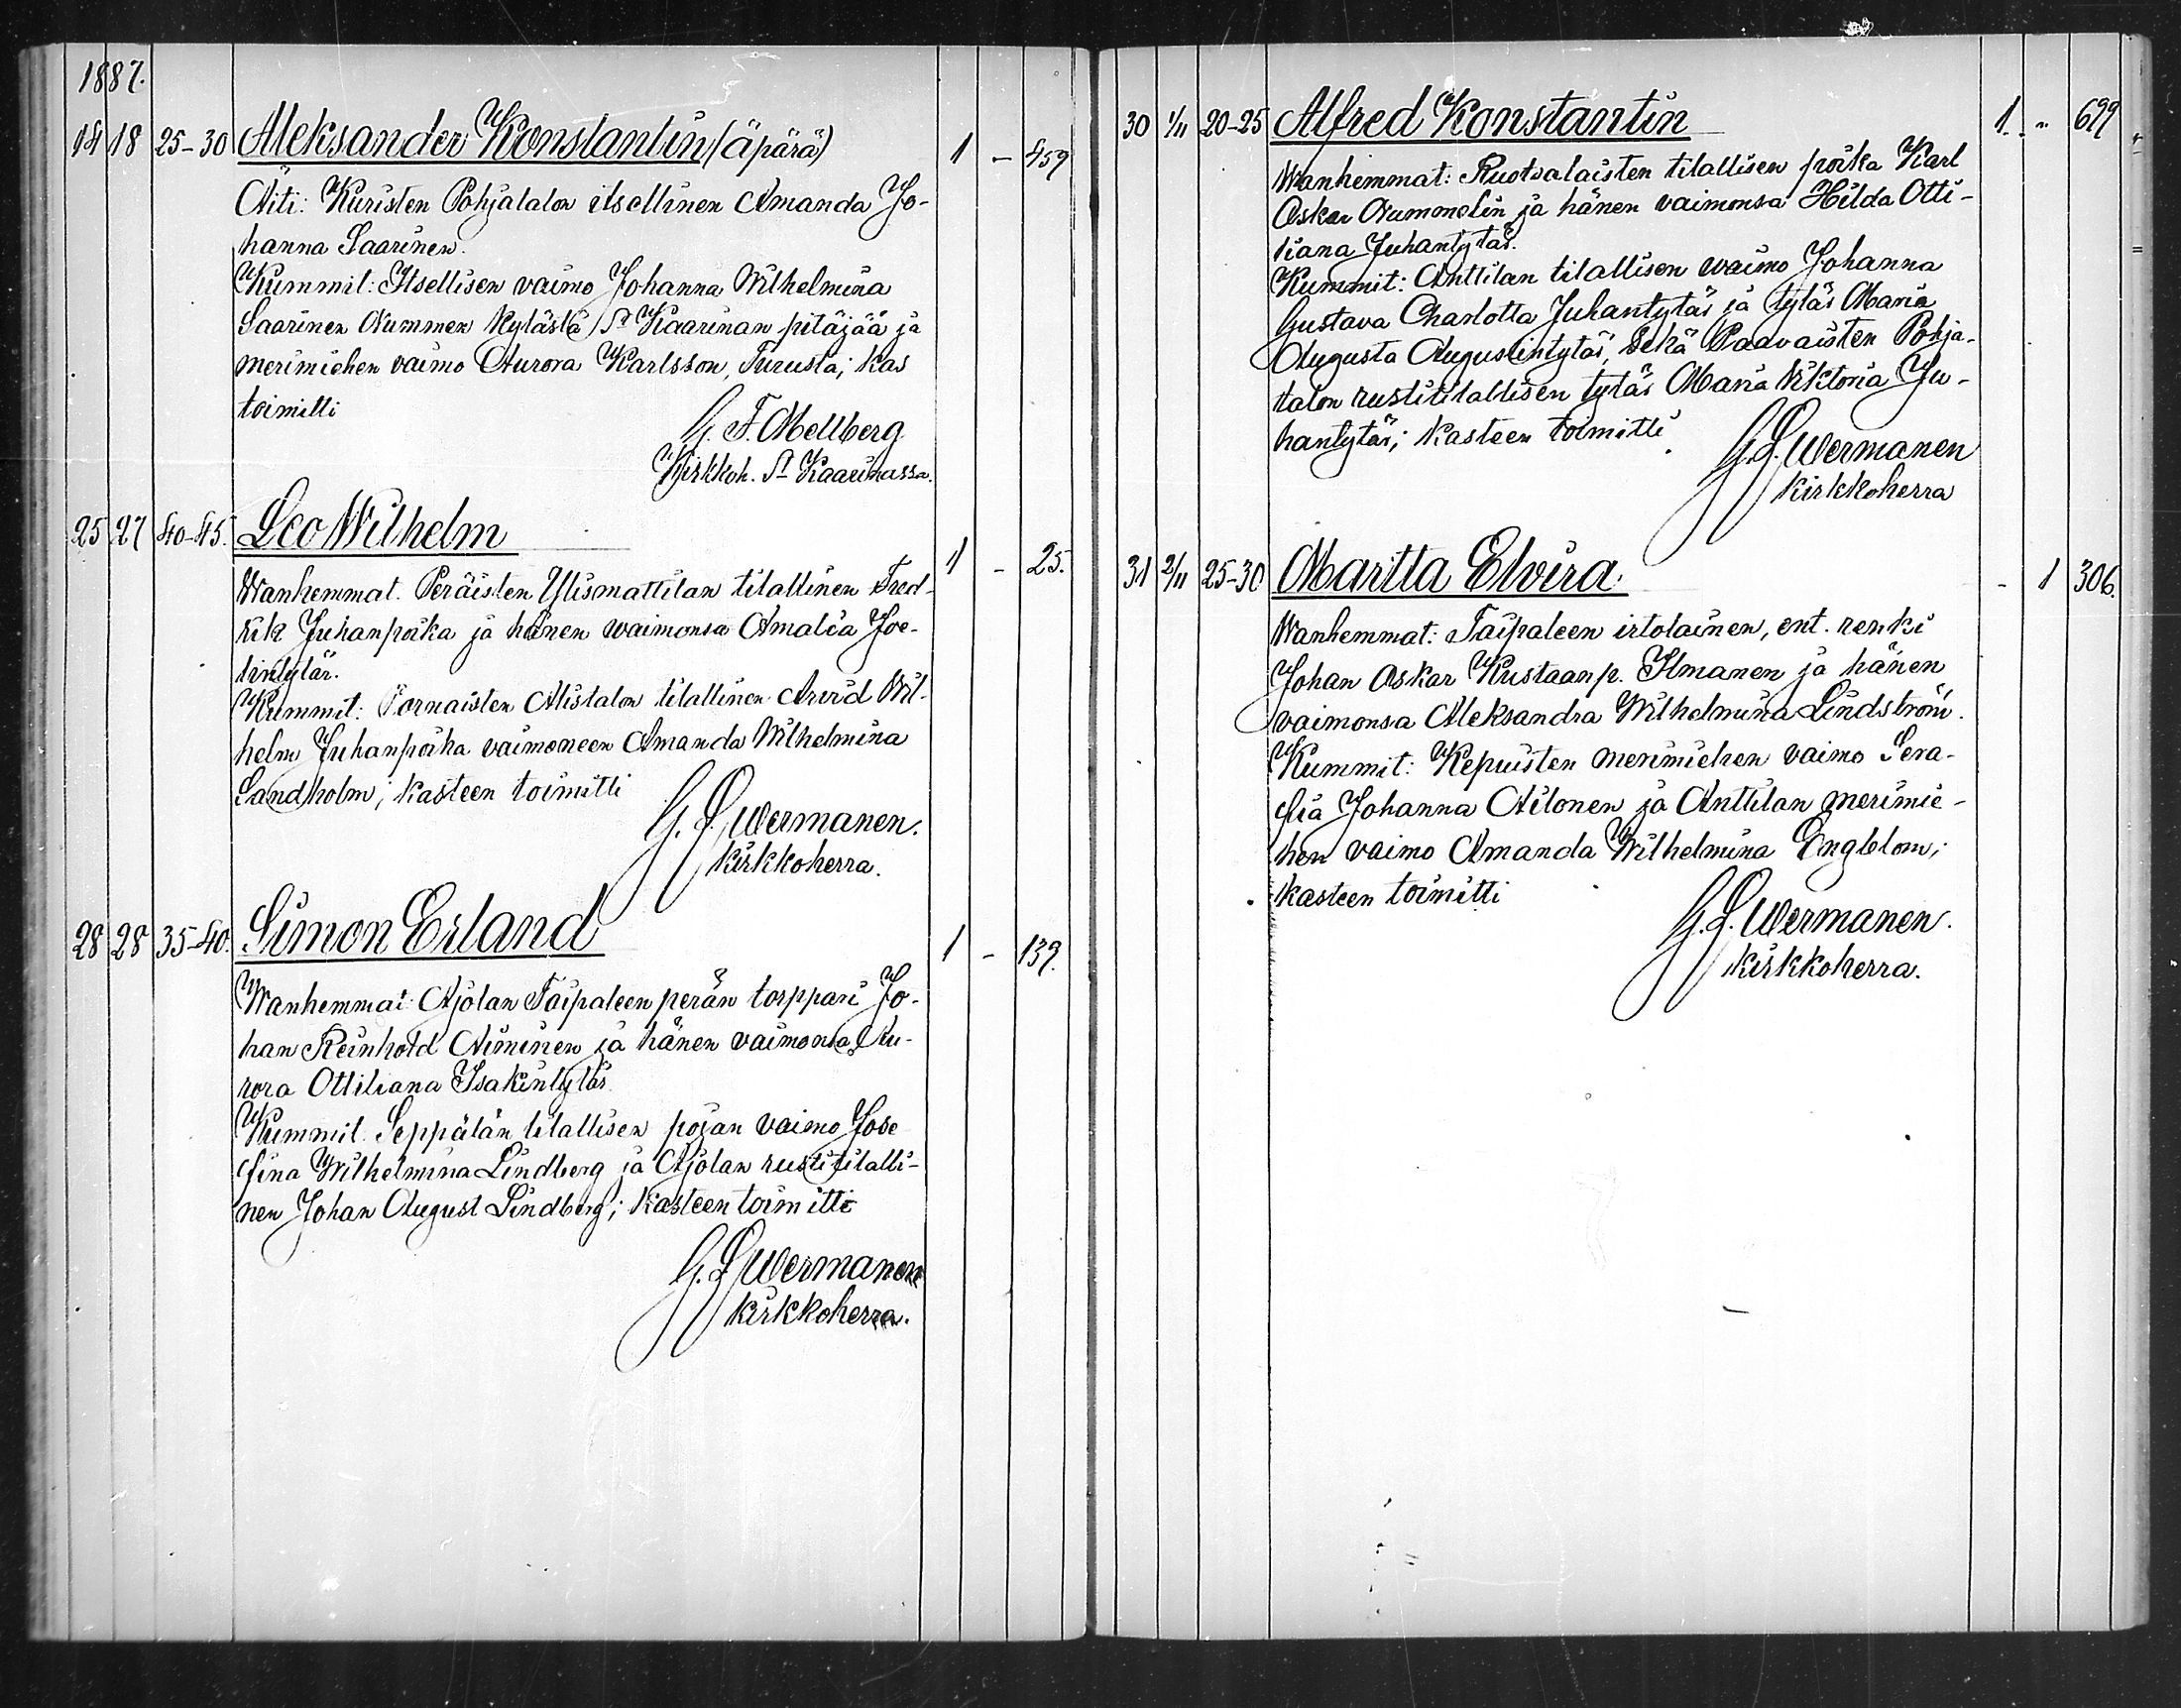 1887.
14 18 25-30 Aleksander Konstantin (äpärä) 1 - 459
Äiti: Kuristen Pohjatalon itsellinen Amanda Jo-
hanna Saarinen.
Kummit: Itsellisen vaimo Johanna Wilhelmina
Saarinen Nummen kylästä St Kaarinan pitäjää ja
merimiehen vaimo Aurora Karlsson, Turusta; kas
toimitti
G. F. Mellberg
Kirkkoh. St Kaarinassa.
25 27 40-45. Leo Wilhelm 1 - 25.
Wanhemmat. Peräisten Ylismattilan tilallinen Fred-
rik Juhanpoika ja hänen vaimonsa Amalia Joe-
lintytär.
Kummit: Pornaisten Alistalon tilallinen Arvid Wil-
helm Juhanpoika vaimoneen Amanda Wilhelmina
Sandholm; kasteen toimitti
G. J. Wermanen.
kirkkoherra.
28 28 35-40. Simon Erland 1 - 139.
Wanhemmat: Ajolan Taipaleen perän torppari Jo-
han Reinhold Aiminen ja hänen vaimonsa Au-
rora Ottiliana Isakintytär
Kummit. Seppälän tilallisen pojan vaimo Jose
fina Wilhelmina Lindberg ja Ajolan rustitilalli-
nen Johan August Lindberg; kasteen toimitti
G. J. Wermanen
kirkkoherra.
30 1/11 20-25 Alfred Konstantin 1. - 699
Wanhemmat: Ruotsalaisten tilallisen poika Karl
Oskar Nummelin ja hänen vaimonsa Hilda Otti-
liana Juhantytär.
Kummit: Anttilan tilallisen vaimo Johanna
Gustava Charlotta Juhantytär ja tytär Maria
Augusta Augustintytär, sekä Paavaisten Pohja-
talon rustitilallisen tytär Maria Viktoria Ju-
hantytär; kasteen toimitti
G. J. Wermanen
kirkkoherra
31 2/11 25-30 Martta Elvira. - 1 306.
Wanhemmat: Taipaleen irtolainen, ent. renki
Johan Oskar Kustaanp. Ilmanen ja hänen
vaimonsa Aleksandra Wilhelmina Lindström.
Kummit: Kepuisten merimiehen vaimo Sera-
fia Johanna Ailonen ja Anttilan merimie-
hen vaimo Amanda Wilhelmina Engblom;
kasteen toimitti
G. J. Wermanen.
kirkkoherra.